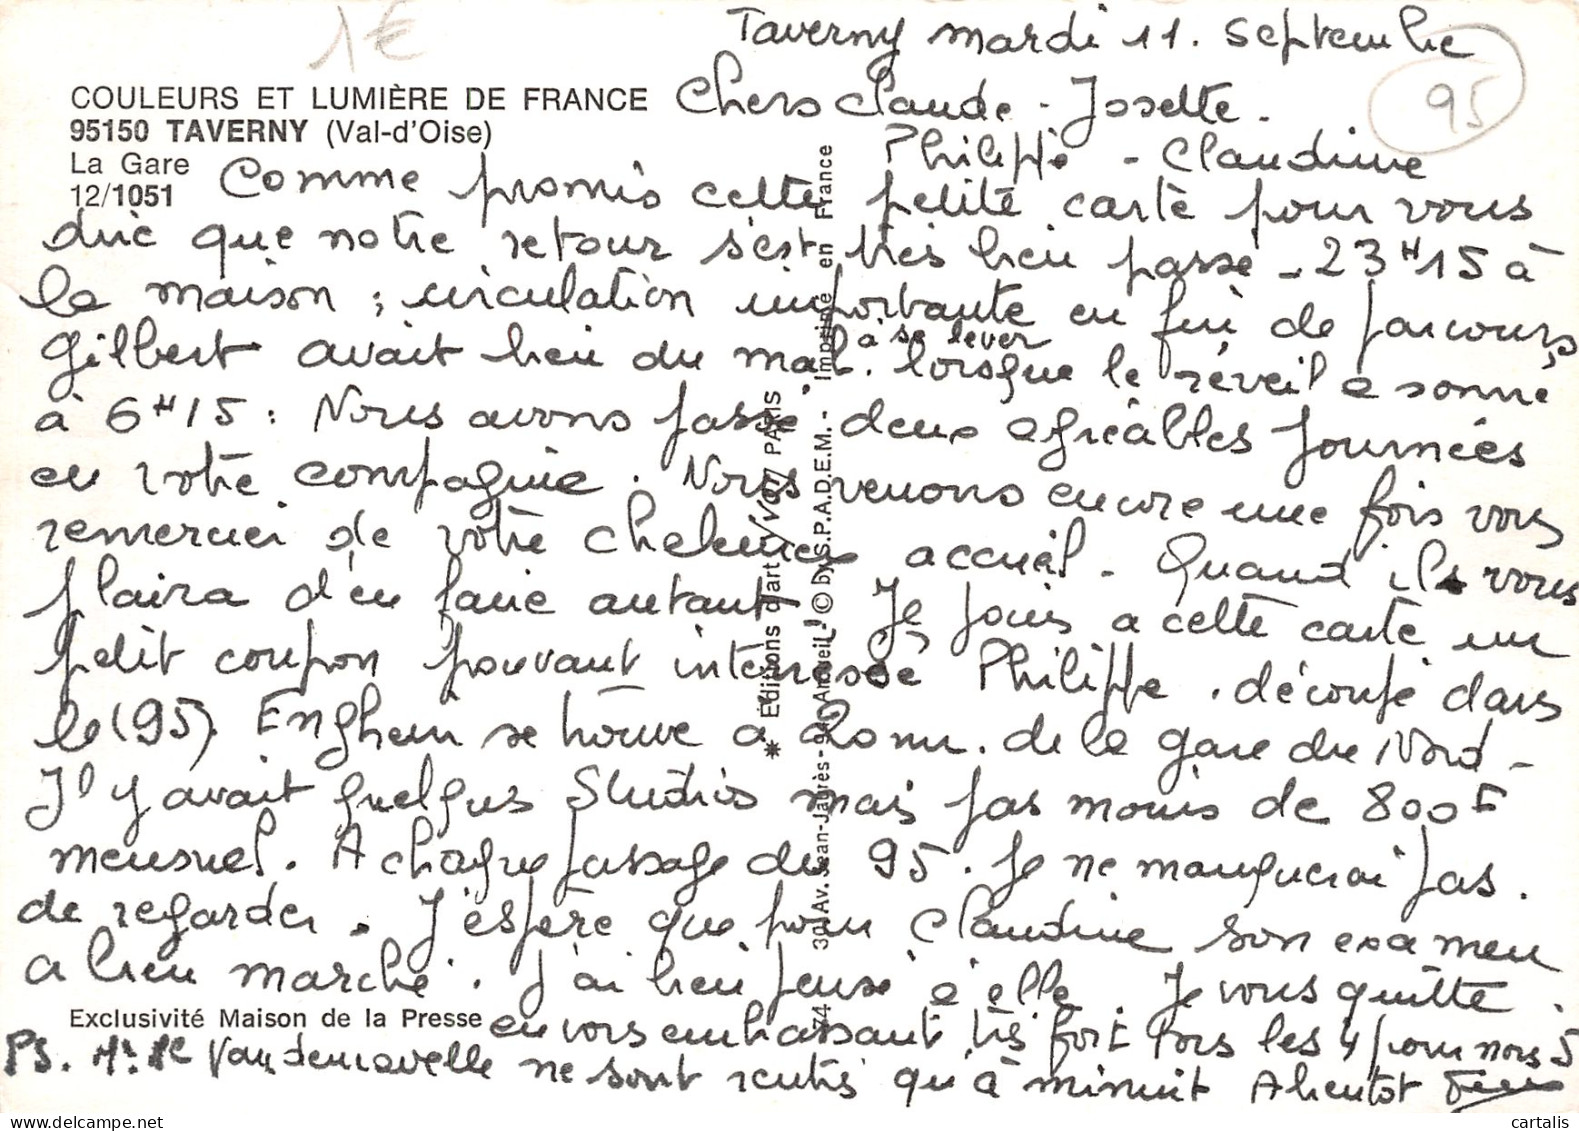 1€
Taverny mardi 11. Septembre
95
COULEURS ET LUMIÈRE DE FRANCE
95150 TAVERNY (Val-d'Oise)
La Gare
12/1051
Chers Claude - Josette -
Philippe - Claudine
Comme promis cette petite carte pour vous
dire que notre retour s'est très bien passé - 23H15 à
la maison ; circulation importante en fin de parcours,
Gilbert avait bien du mal à se lever lorsque le réveil a sonné
à 6H15 : Nous avons passé deux agréables journées
en votre compagnie. Nous venons encore une fois vous
remercier de votre chaleureux accueil - Quand il vous
plaira d'en faire autant. Je joins a cette carte un
petit coupon pouvant intéressé Philippe. découpé dans
le (95). Enghien se trouve a 20 mn. de la gare du Nord -
Il y avait quelques studios mais pas moins de 800F
mensuel. A chaque passage du 95. je ne manquerai pas.
de regarder. J'espère que pour Claudine son examen
a bien marché. J'ai bien pensé à elle. Je vous quitte.
en vous embrassant très fort tous les 4 pour nous 5
PS. Mr. Me ne sont rentrés qu'à minuit A bientôt
Exclusivité Maison de la Presse
✷ Editions d'art Yvon PARIS
Av. Jean-Jaurès - 94 Arcueil - © by S.P.A.D.E.M. - Imprimé en France